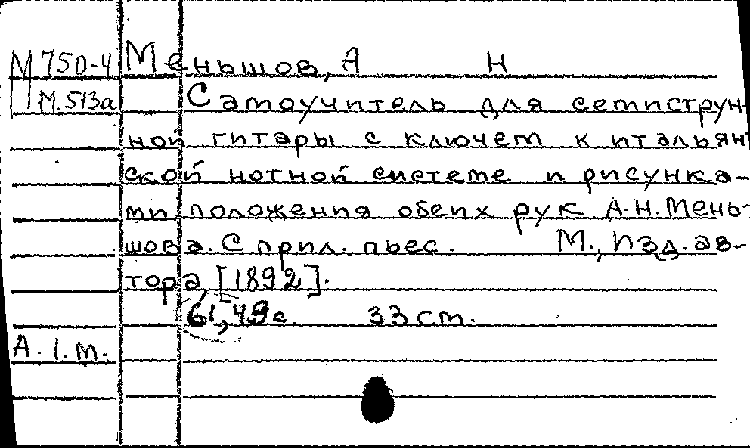 М 75D-4 Меньшов, А Н
М.513а Самоучитель для семиструн
ной гитары с ключем к итальян
ской нотной системе и рисунка-
ми положения обеих рук А.Н.Мень-
шова. С прил. пьес. М., изд. ав-
тора, [1892].
61,49с. 33 см.
А.1.м.